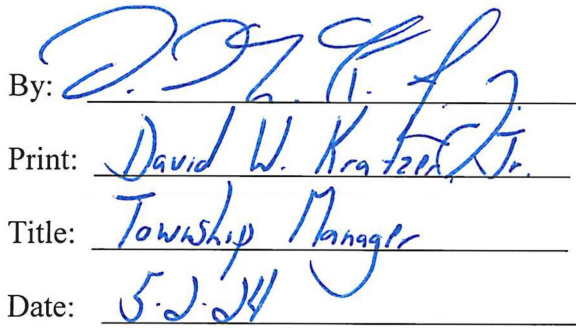 By:
Print: David W. Kratzer, Jr.
Title: Township Manager
Date: 5.2.24